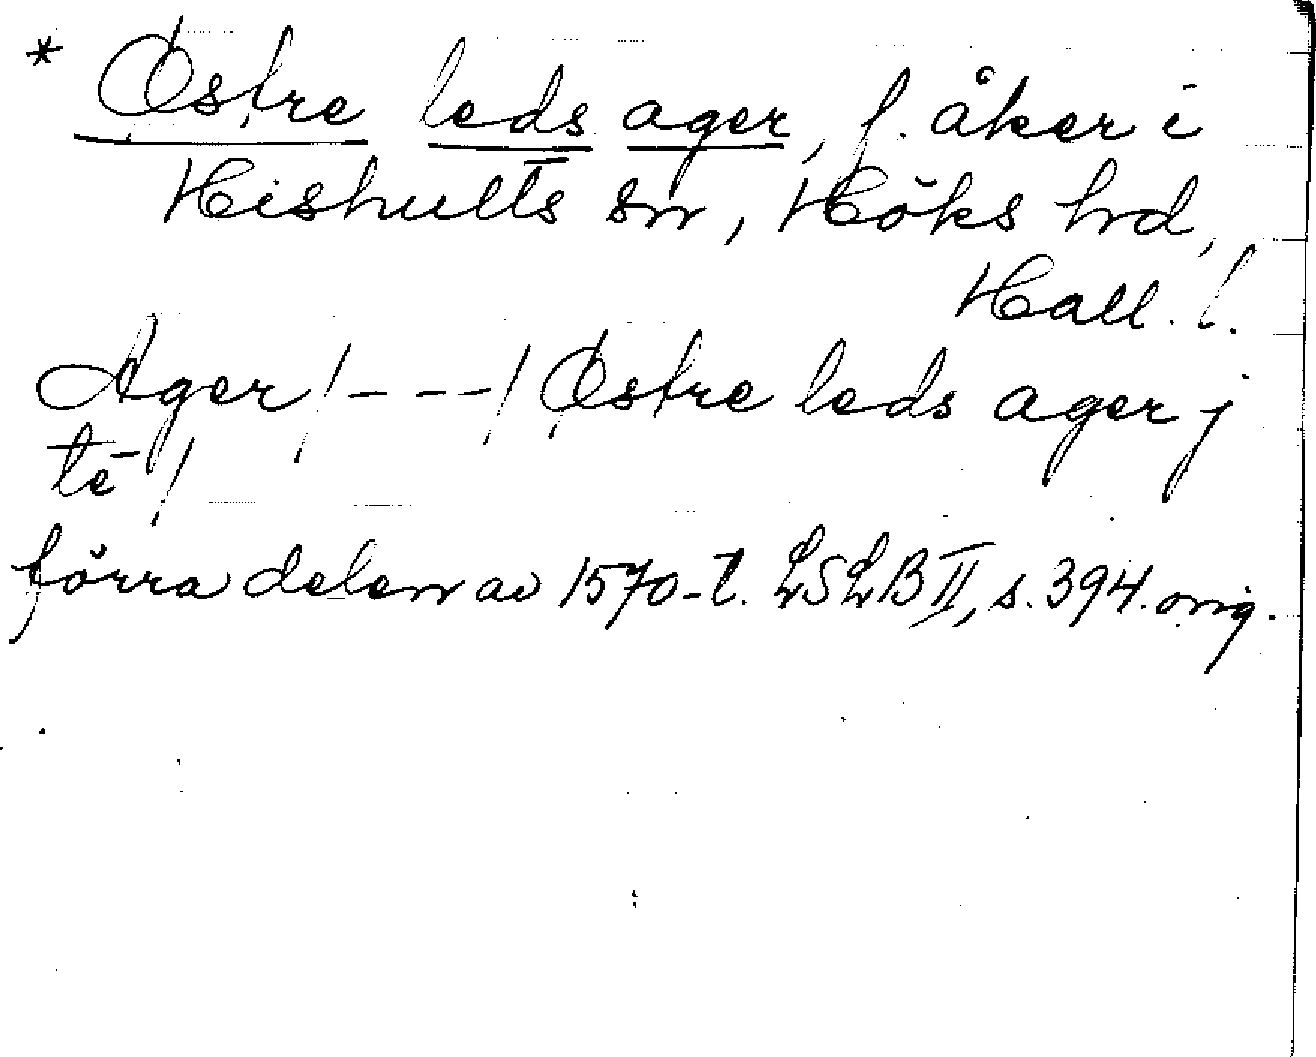 * Østre leds ager, f. åker i
Hishults sn, Höks hrd,
Hall. l.
Ager /---/ Østre leds ager j
tē /
förra delen av 1570-t. LSLB II, s. 394. orig.